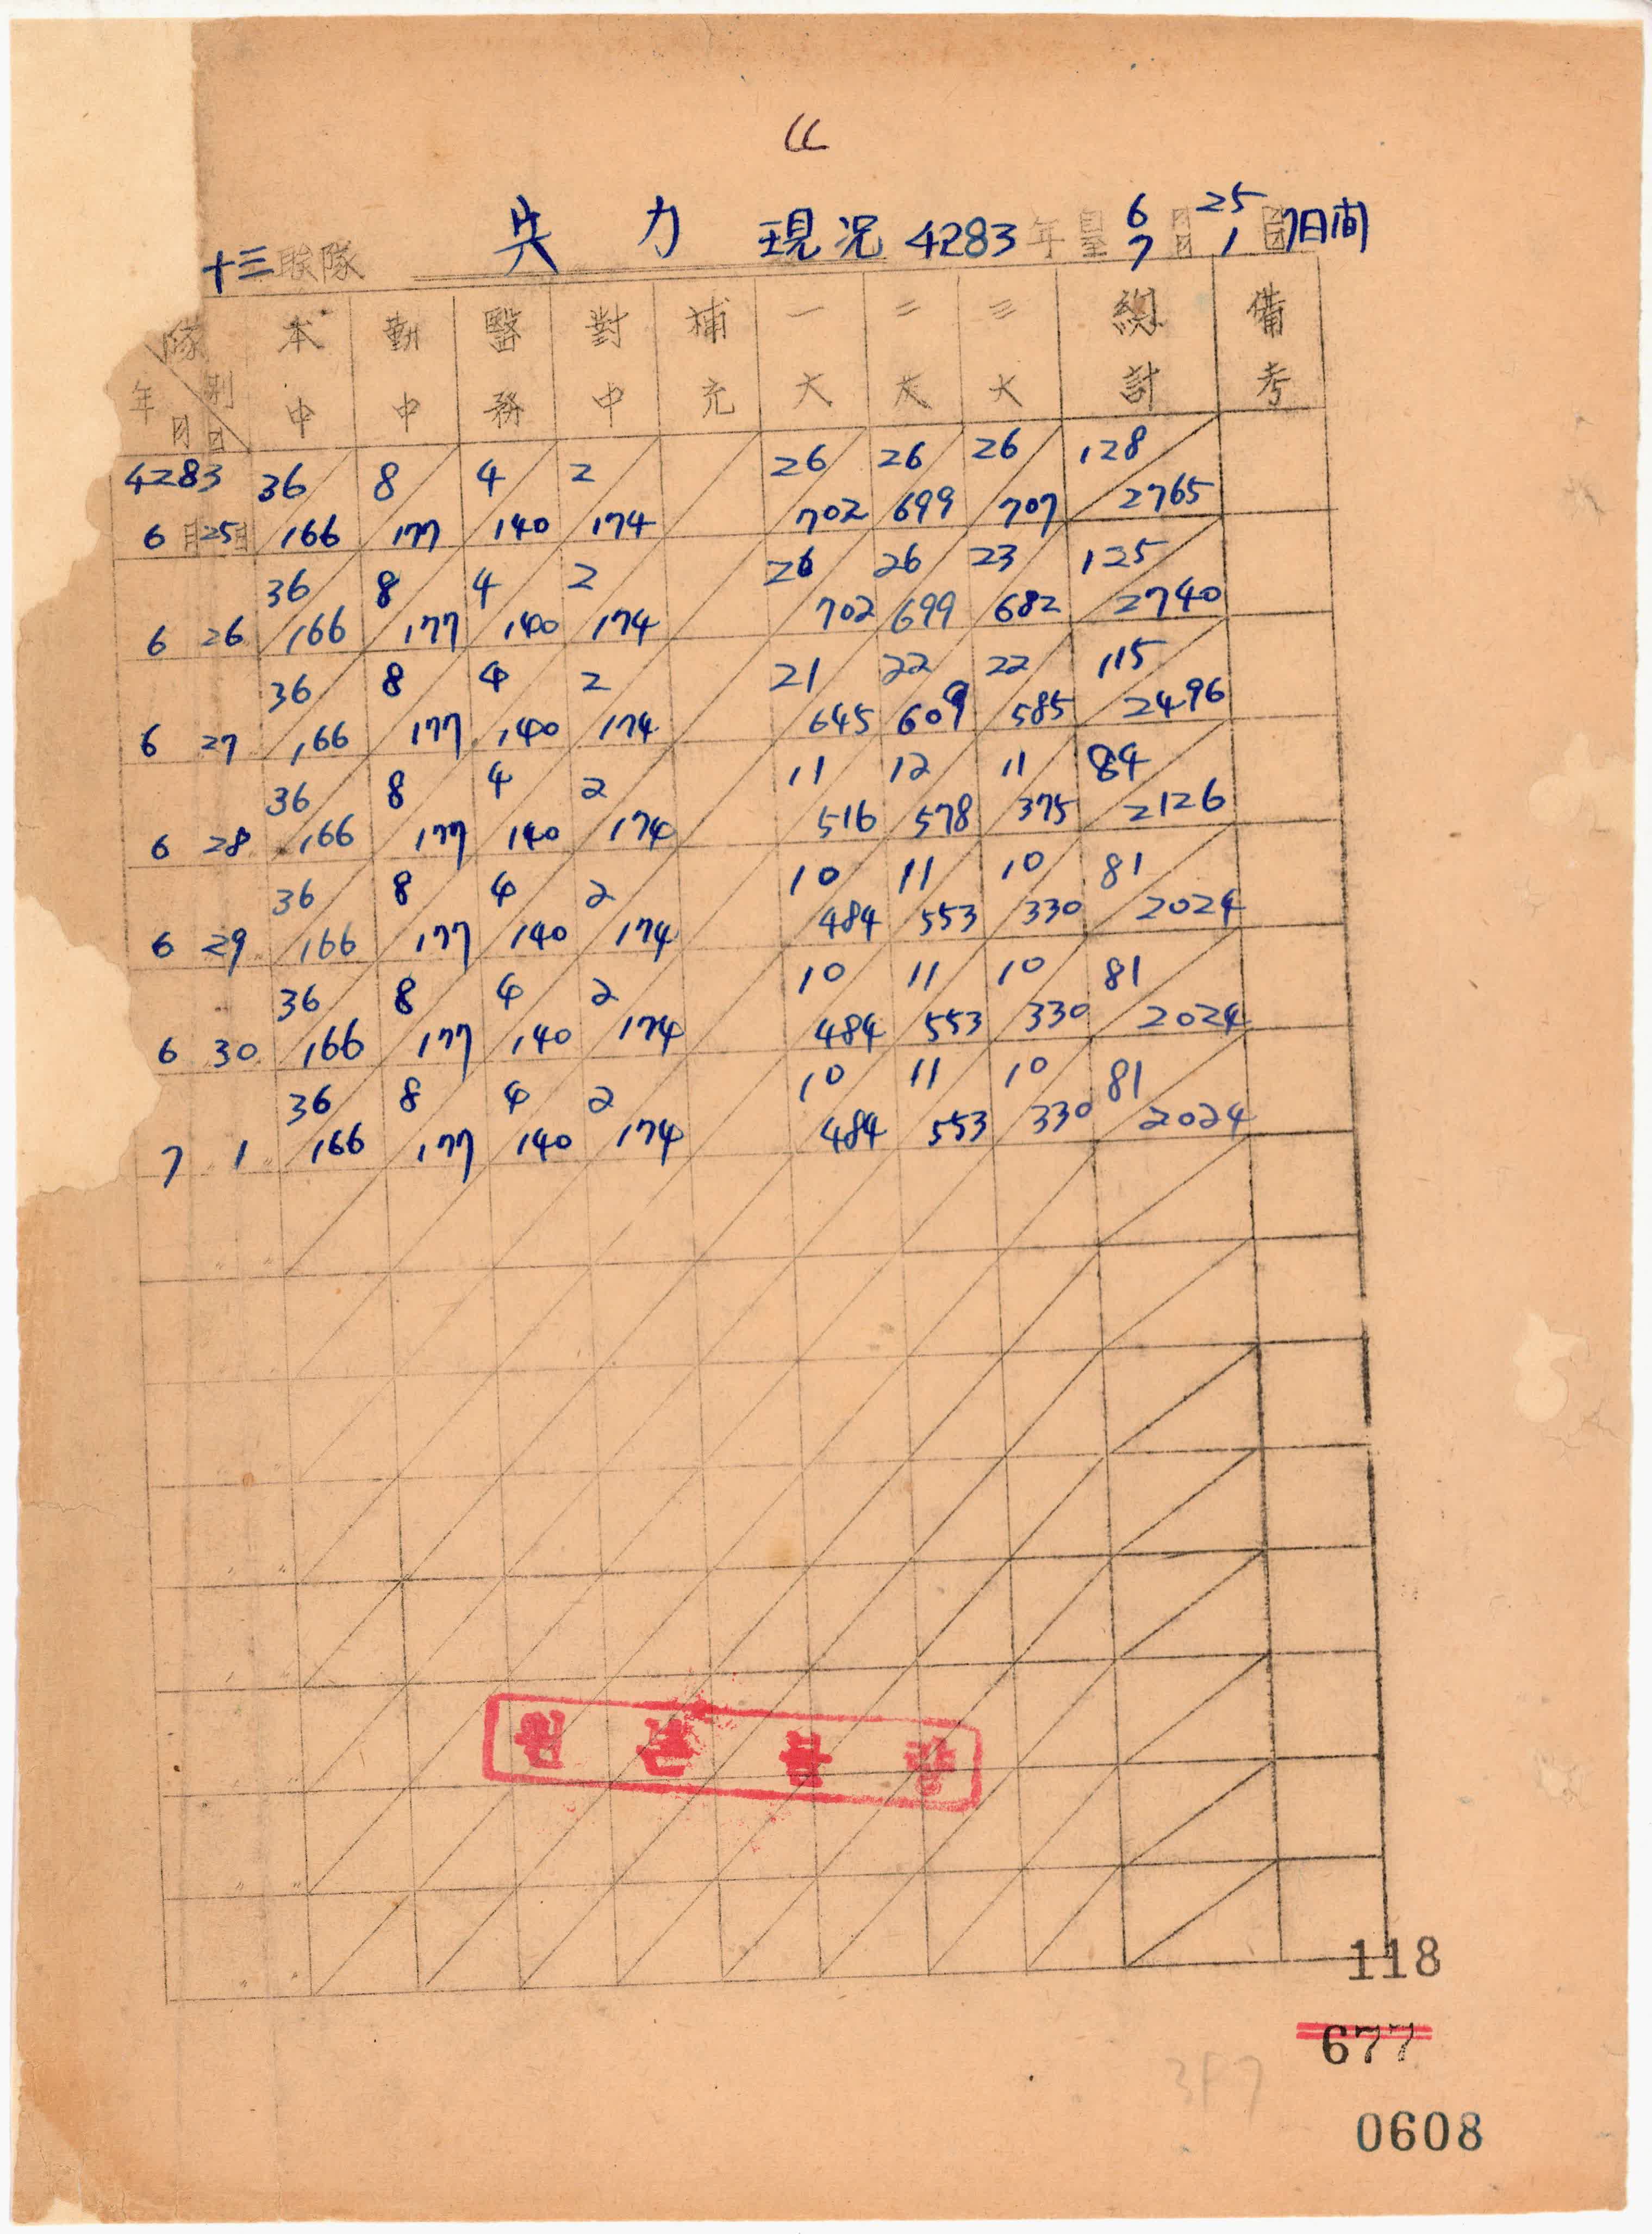 十三聯隊 兵力 現況 4283年 自 6月25日 至 7月1日 7日間
隊別 年月日 本中 勤中 醫務 對中 補充 一大 二大 三大 總計 備考
4283 36 8 4 2 26 26 26 128
6月25日 166 177 140 174 702 699 707 2765
36 8 4 2 26 26 23 125
6 26 166 177 140 174 702 699 682 2740
36 8 4 2 21 22 22 115
6 27 166 177 140 174 645 609 585 2496
36 8 4 2 11 12 11 84
6 28 166 177 140 174 516 578 375 2126
36 8 4 2 10 11 10 81
6 29 166 177 140 174 484 553 330 2024
36 8 4 2 10 11 10 81
6 30 166 177 140 174 484 553 330 2024
36 8 4 2 10 11 10 81
7 1 166 177 140 174 484 553 330 2024
원본불량
118
677
0608